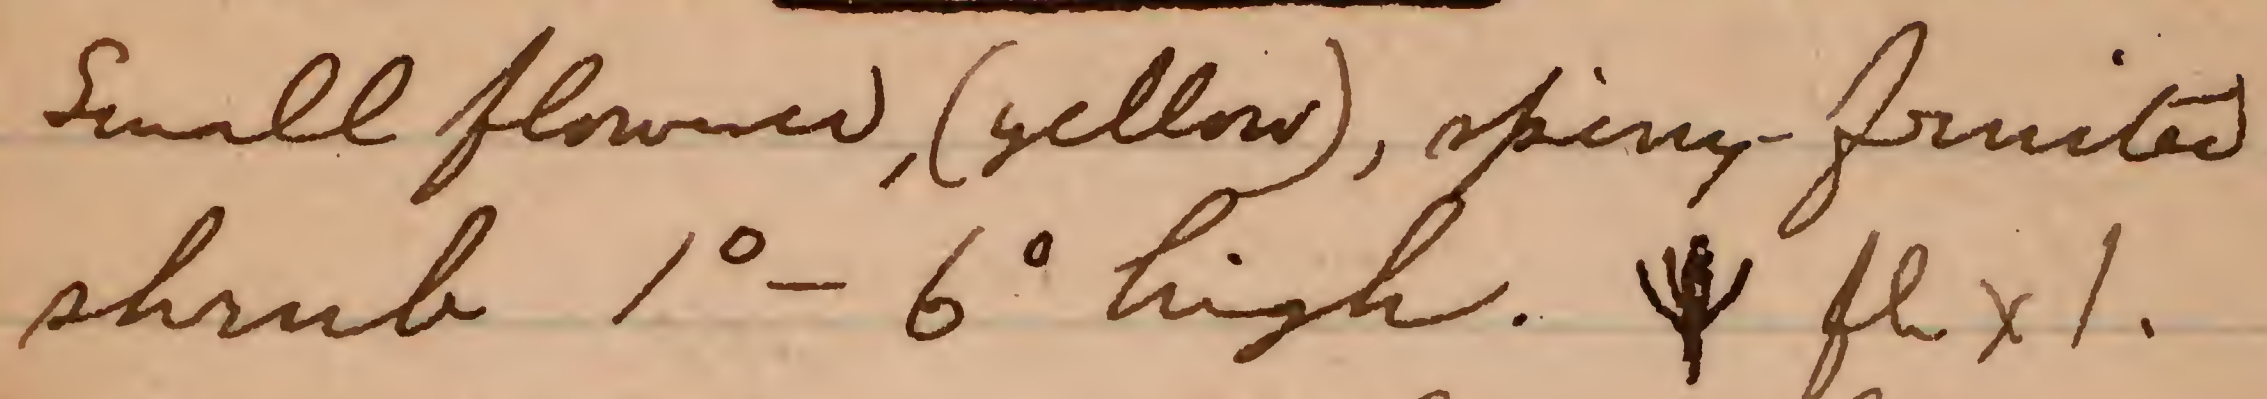 Small flowered, (yellow), spiny-fruited
shrub 1° - 6° high. fl x 1.